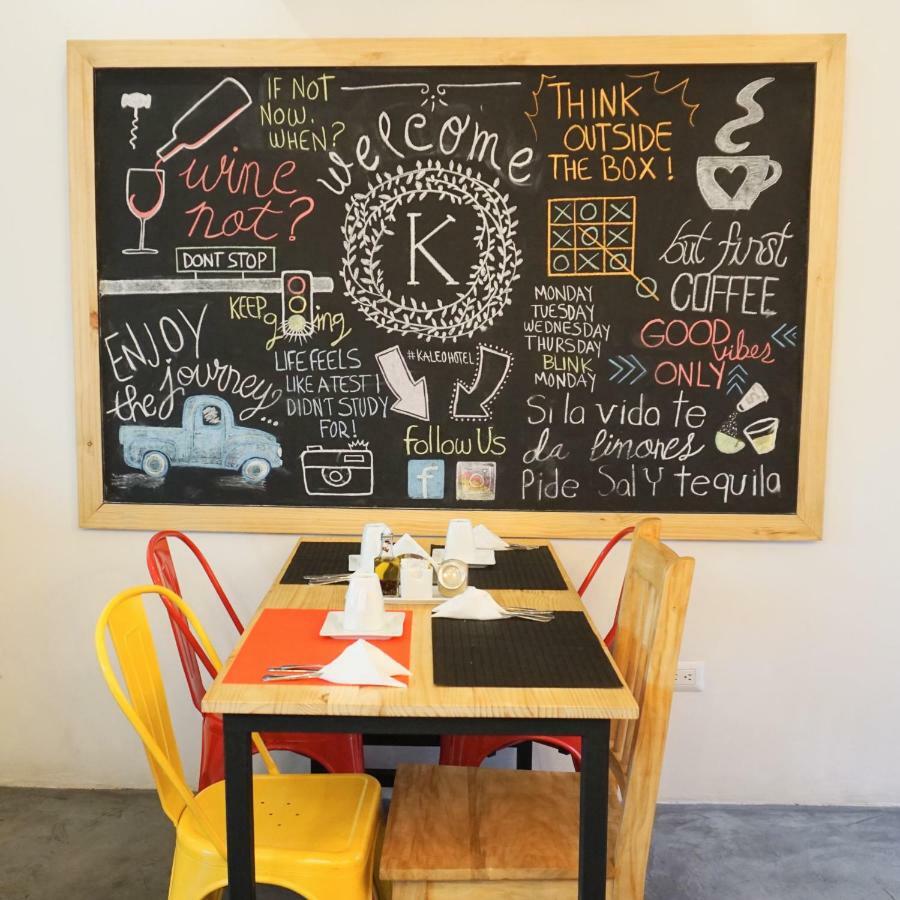 IF NOT
NOW.
WHEN?
wine
not?
DONT STOP
KEEP
going
ENJOY
the journey
LIFE FEELS
LIKE A TEST I
DIDN'T STUDY
FOR!
welcome
K
#KALEOHOTEL
Follow Us
f
THINK
OUTSIDE
THE BOX!
X O X
X O X
O X O
O
but first
COFFEE
MONDAY
TUESDAY
WEDNESDAY
THURSDAY
BLINK
MONDAY
GOOD
vibes
ONLY
Si la vida te
da limones
Pide Sal Y tequila